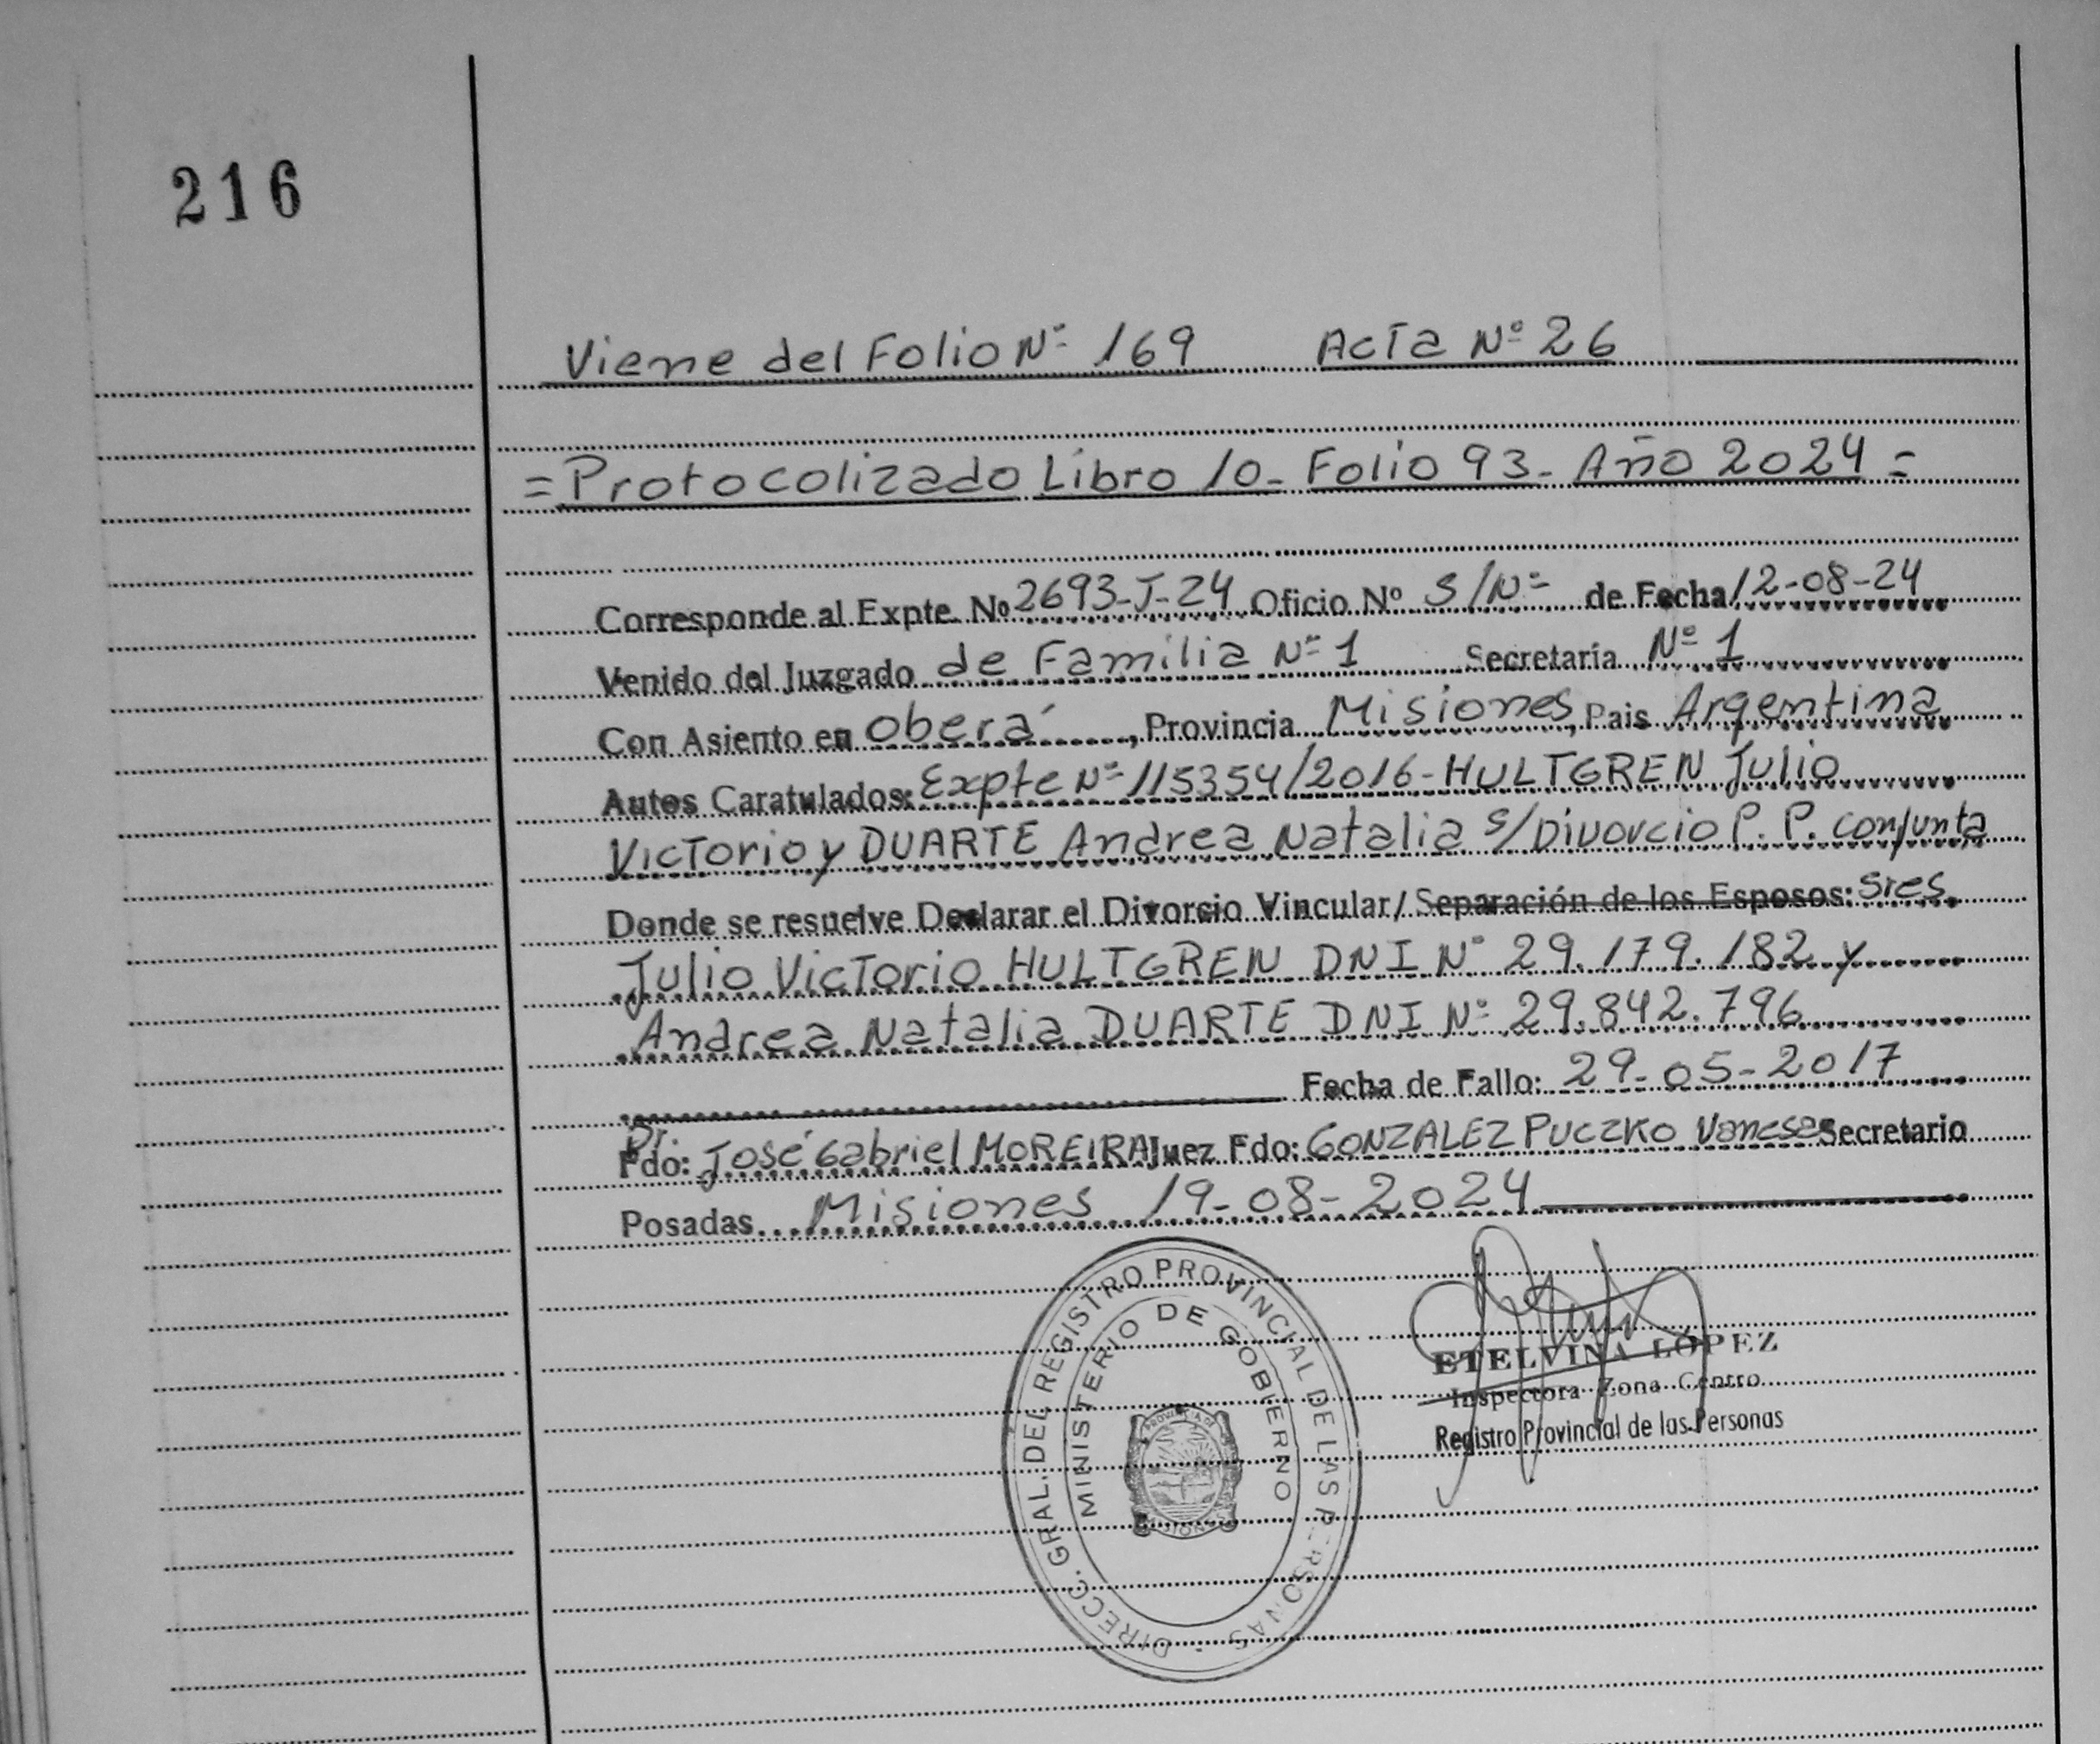 216
Viene del Folio Nº 169 Acta Nº 26
= Protocolizado Libro 10- Folio 93- Año 2024 =
Corresponde al Expte. Nº 2693-J-24 Oficio Nº S/Nº de Fecha 12-08-24
Venido del Juzgado de Familia Nº 1 Secretaría Nº 1
Con Asiento en Oberá, Provincia Misiones, Pais Argentina
Autos Caratulados: Expte Nº 115354/2016-HULTGREN Julio
Victorio y DUARTE Andrea Natalia s/Divorcio P. P. conjunta
Donde se resuelve Declarar el Divorcio Vincular/ Separación de los Esposos: Sres.
Julio Victorio HULTGREN DNI Nº 29.179.182 y
Andrea Natalia DUARTE DNI Nº 29.842.796
Fecha de Fallo: 29-05-2017
Dr.
Fdo: José Gabriel MOREIRA Juez Fdo: GONZALEZ PUCZKO Vanesa Secretario
Posadas... Misiones 19-08-2024
DIRECC. GRAL. DEL REGISTRO PROVINCIAL DE LAS PERSONAS
MINISTERIO DE GOBIERNO
PROVINCIA DE
MISIONES
ETELVINA LÓPEZ
Inspectora Zona Centro
Registro Provincial de las Personas